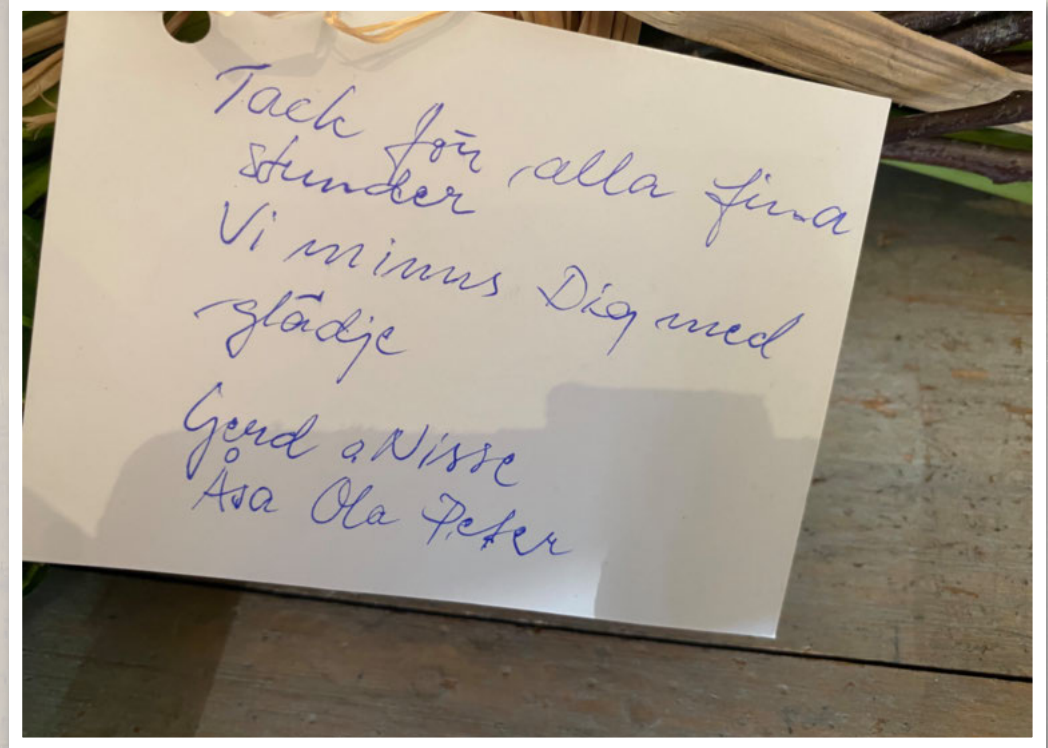 Tack för alla fina
stunder
Vi minns Dig med
glädje
Gerd o Nisse
Åsa Ola Peter